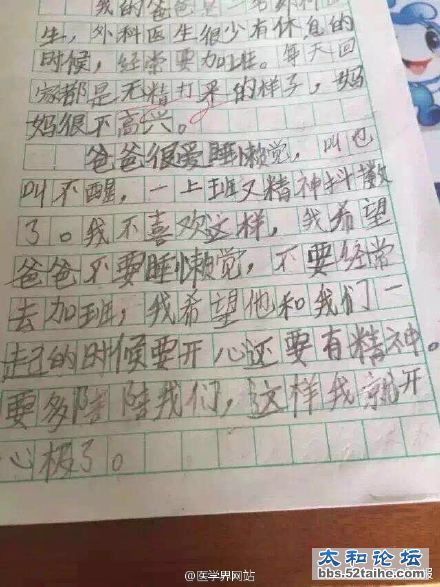 我的爸爸是一名外科医
生，外科医生很少有休息的
时候，经常要加班。每天回
家都是无精打采的样子，妈
妈很不高兴。
爸爸很爱睡懒觉，叫也
叫不醒，一上班又精神抖擞
了。我不喜欢这样，我希望
爸爸不要睡懒觉，不要经常
去加班，我希望他和我们一
起的时候要开心还要有精神。
要多陪陪我们，这样我就开
心极了。
@医学界网站
太和论坛
bbs.52taihe.com